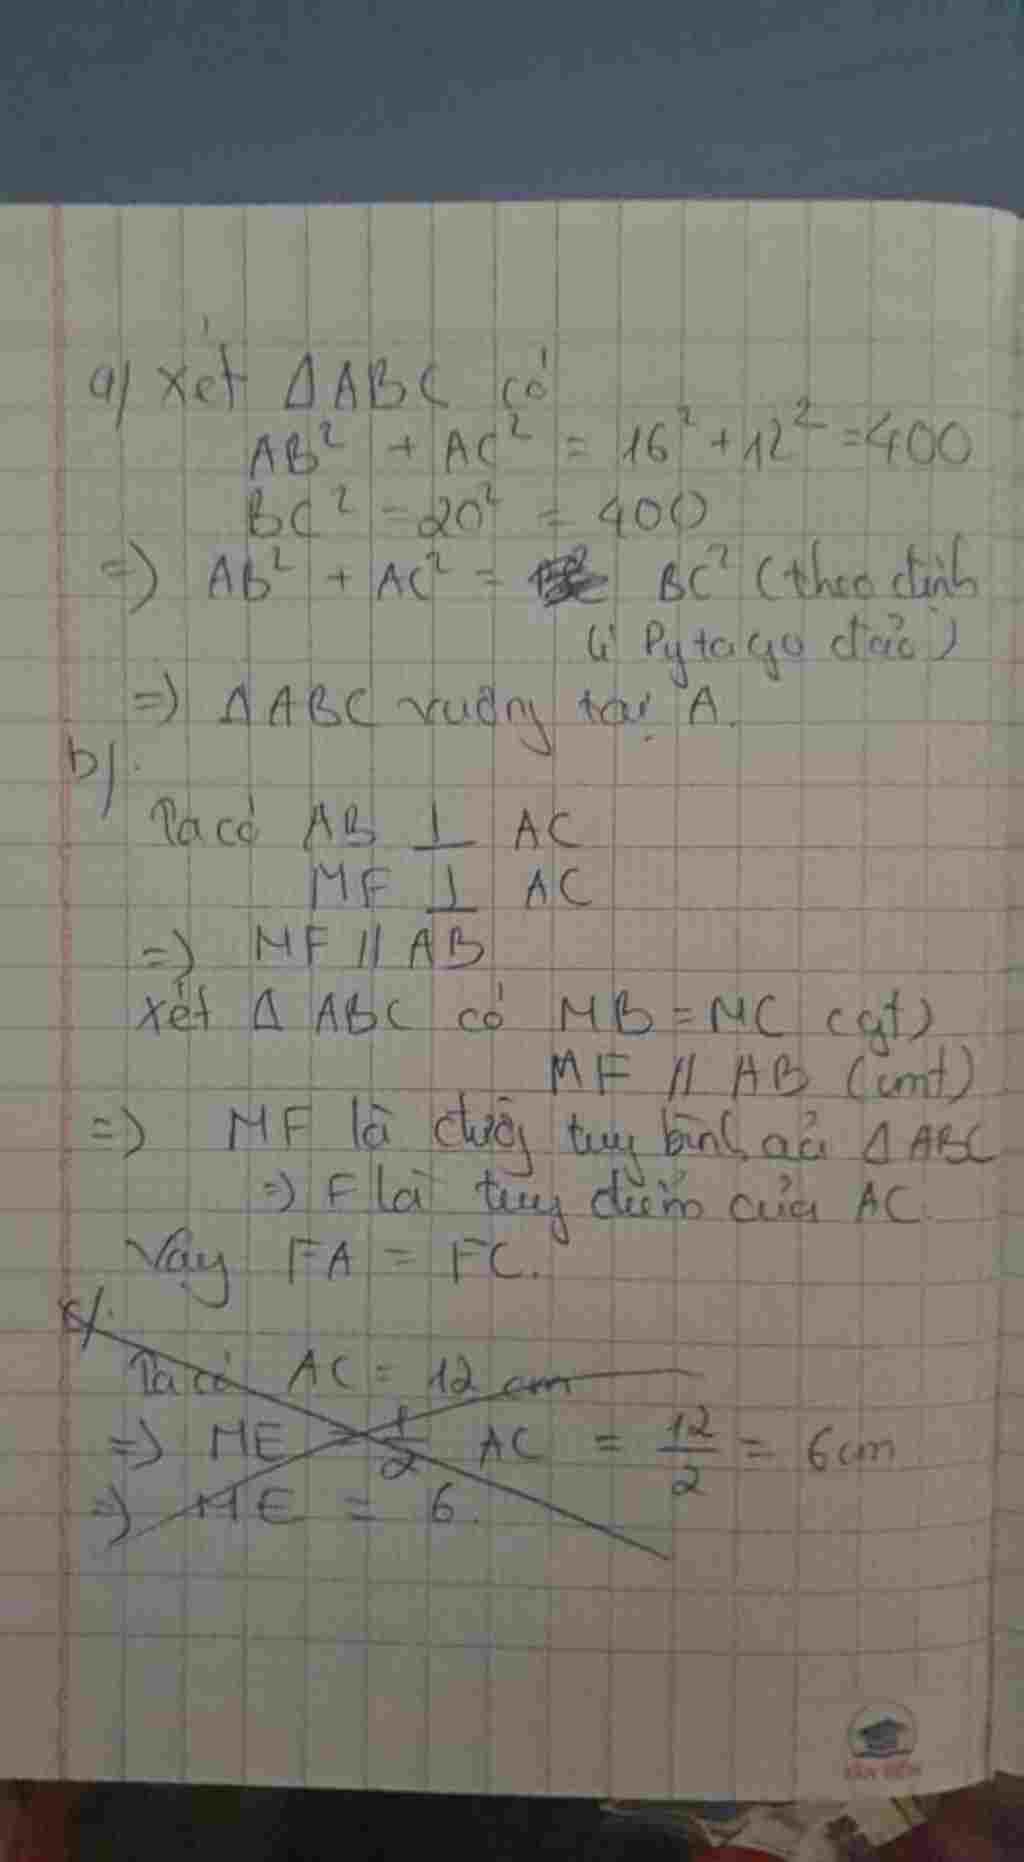 a) Xét Δ ABC có
AB² + AC² = 16² + 12² = 400
BC² = 20² = 400
=) AB² + AC² = BC² (theo định
lí Pytago đảo)
=) Δ ABC vuông tại A.
b)
Ta có AB ⊥ AC
MF ⊥ AC
=) MF // AB
Xét Δ ABC có MB = MC (gt)
MF // AB (cmt)
=) MF là đường trung bình của Δ ABC
=) F là trung điểm của AC.
Vậy FA = FC.
c)
Ta có AC = 12 cm
=) ME = 1/2 AC = 12/2 = 6cm
=) ME = 6.